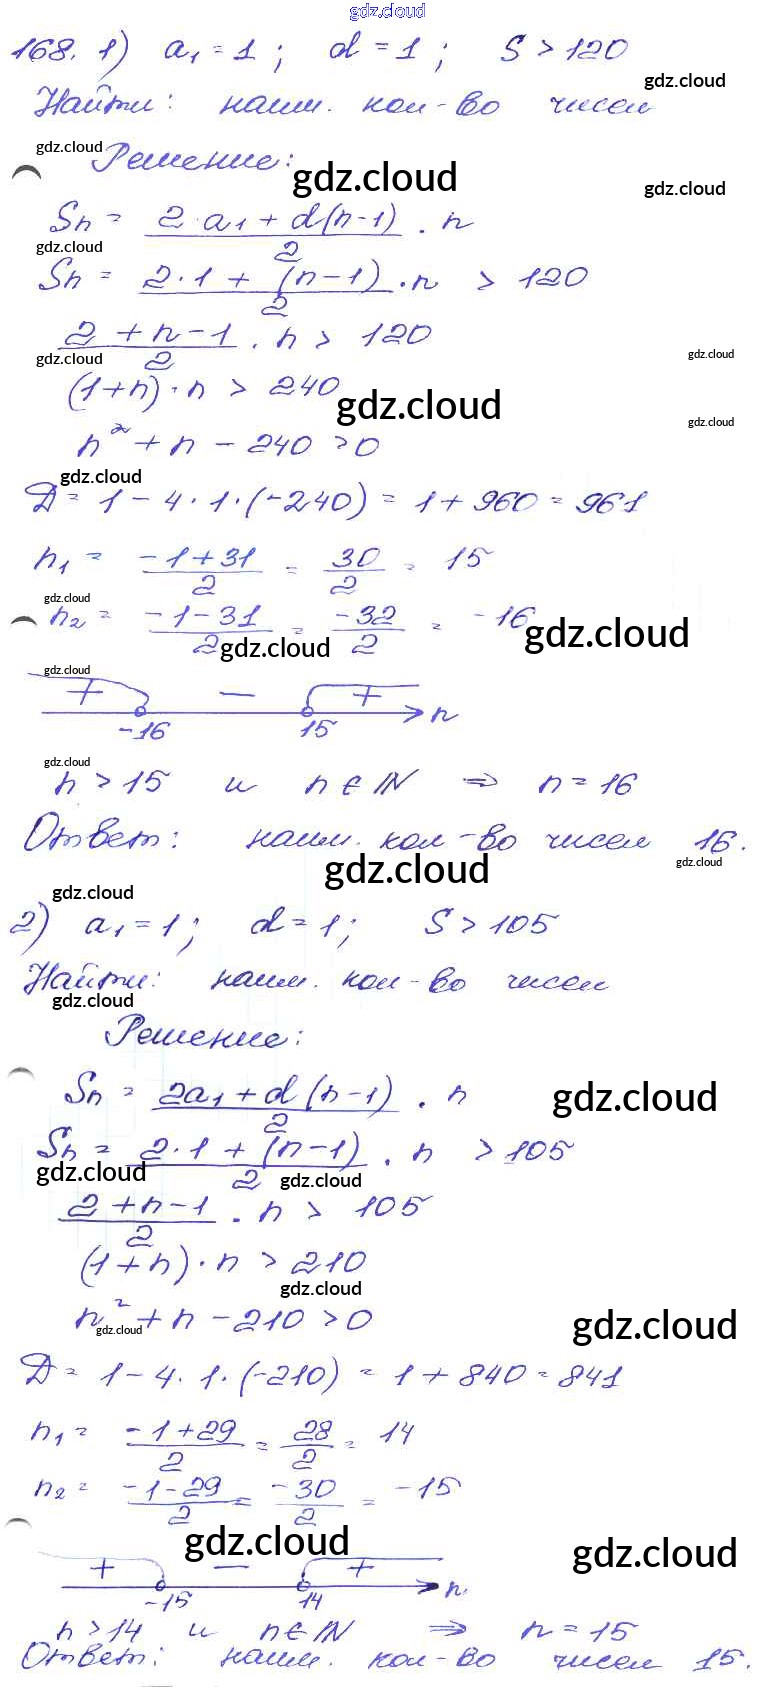 gdz.cloud
168. 1) a₁ = 1; d = 1; S > 120
gdz.cloud
Найти: наим. кол-во чисел
gdz.cloud Решение:
gdz.cloud gdz.cloud
Sn = (2·a₁ + d(n-1))/2 · n
gdz.cloud
Sn = (2·1 + (n-1))/2 · n > 120
(2 + n - 1)/2 · n > 120
gdz.cloud gdz.cloud
(1+n)·n > 240
gdz.cloud gdz.cloud
n² + n - 240 > 0
gdz.cloud
Д = 1 - 4·1·(-240) = 1 + 960 = 961
n₁ = (-1+31)/2 = 30/2 = 15
gdz.cloud
n₂ = (-1-31)/2 = -32/2 = -16
gdz.cloud gdz.cloud
gdz.cloud
+ — +
-16 15 n
gdz.cloud
n > 15 и n ∈ N ⇒ n = 16
Ответ: наим. кол-во чисел 16.
gdz.cloud gdz.cloud
gdz.cloud
2) a₁ = 1; d = 1; S > 105
Найти: наим. кол-во чисел
gdz.cloud
Решение:
Sn = (2a₁ + d(n-1))/2 · n
gdz.cloud
Sn = (2·1 + (n-1))/2 · n > 105
gdz.cloud gdz.cloud
(2 + n - 1)/2 · n > 105
(1+n)·n > 210
gdz.cloud
n² + n - 210 > 0
gdz.cloud gdz.cloud
Д = 1 - 4·1·(-210) = 1 + 840 = 841
n₁ = (-1+29)/2 = 28/2 = 14
n₂ = (-1-29)/2 = -30/2 = -15
gdz.cloud gdz.cloud
+ — +
-15 14 n
n > 14 и n ∈ N ⇒ n = 15
Ответ: наим. кол-во чисел 15.